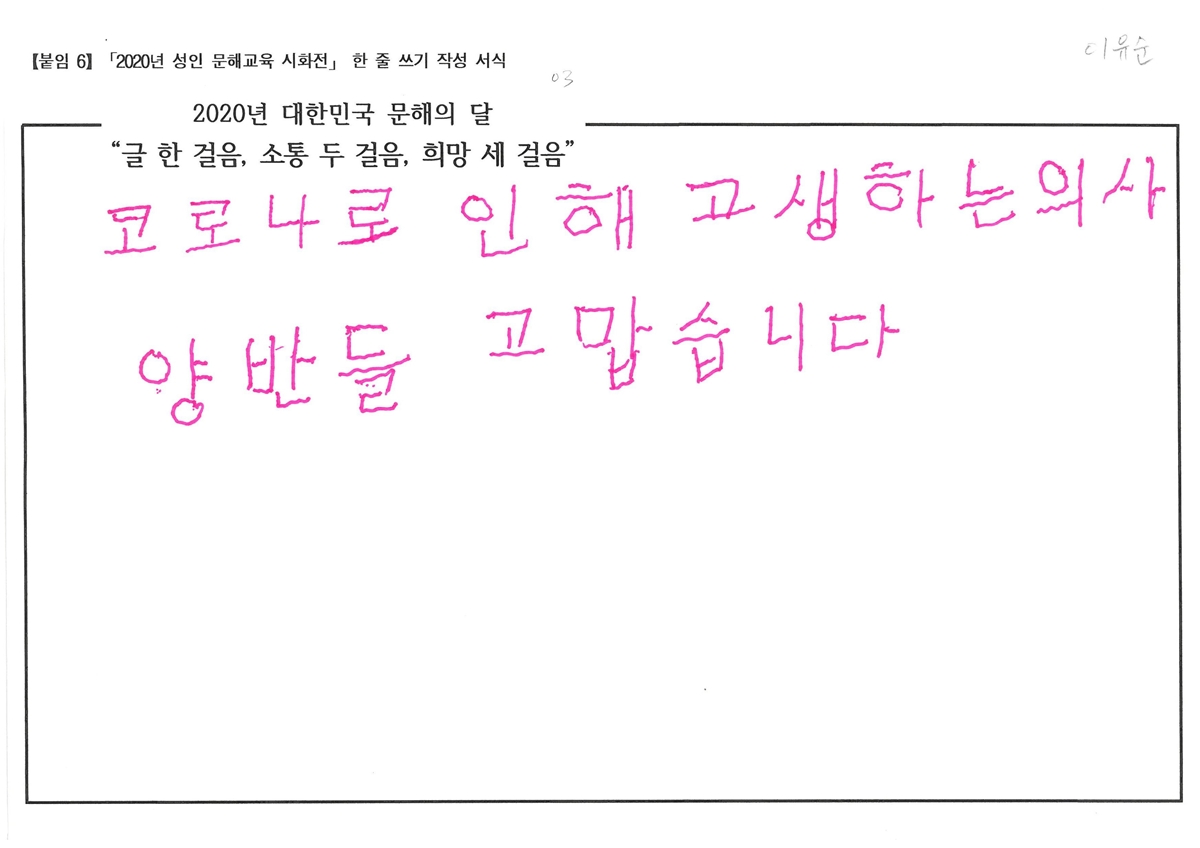 【붙임 6】 「2020년 성인 문해교육 시화전」 한 줄 쓰기 작성 서식
이유순
03
2020년 대한민국 문해의 달
“글 한 걸음, 소통 두 걸음, 희망 세 걸음”
코로나로 인해 고생하는의사
양반들 고맙습니다